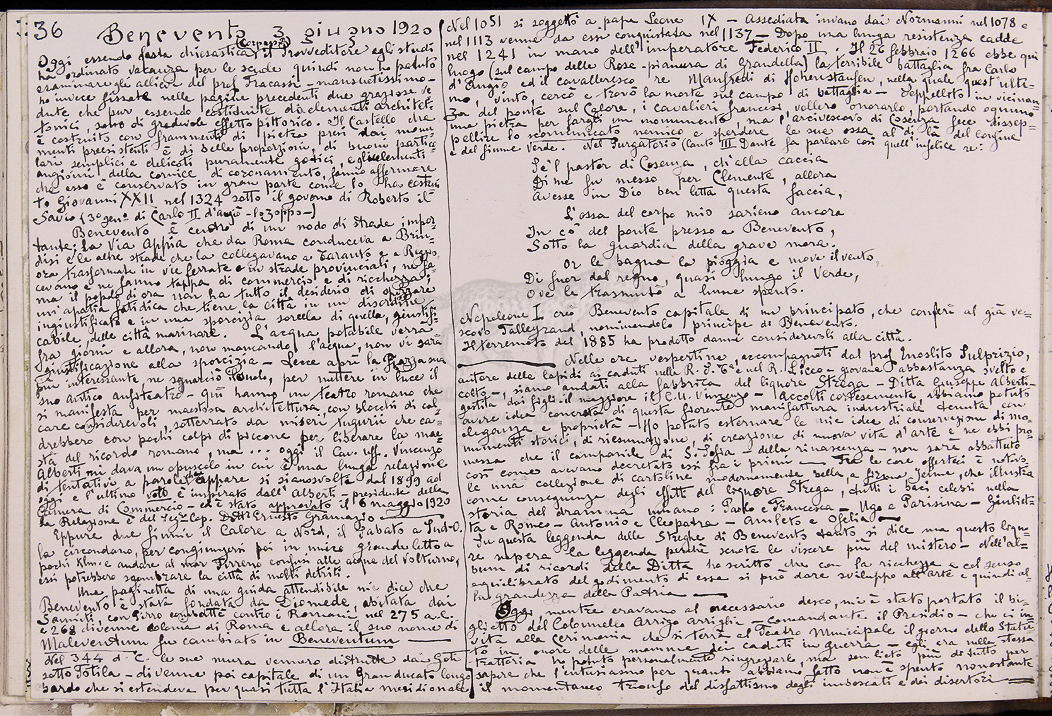 36 Benevento 3 giugno 1920
Oggi essendo festa chiesastica (Corpus Dni) il Provveditore agli studi
ha ordinato vacanza per le scuole quindi non ho potuto
esaminare gli allievi del prof Fracassi - mansuetissimo -
ho invece fissate nelle pagine precedenti due graziose ve
dute che pur essendo costituite di elementi architet-
tonici, sono di gradevole effetto pittorico. Il Castello che
è costruito a frammenti di pietra presi dai monu
menti preesistenti è di belle proporzioni, di buoni parti
lari semplici e delicati puramente gotici, e gli elementi
angioini della cornice di coronamento, fanno affermare
che esso è conservato in gran parte come lo ha costrui
to Giovanni XXII nel 1324 sotto il governo di Roberto il
Savio (3º gen.º di Carlo II d'Angiò - lo Zoppo -)
Benevento è centro di un nodo di strade impor
tante: la Via Appia che da Roma conduceva a Brin-
disi e le altre strade che la collegavano a Taranto e a Reggio
ora trasformate in vie ferrate e in strade provinciali, ne fa
cevano e ne fanno tappa di commercio e di ricchezza
ma il popolo di ora non ha tutto il desiderio di
un'apatia fatidica che tiene la città in un disordine
ingiustificato e in una sporcizia sorella di quella, giustifi
cabile, delle città marinare. L'acqua potabile verrà
fra giorni e allora, non mancando l'acqua, non vi sarà
giustificazione alla sporcizia - Lecce aprì la Piazza sua
più interessante, ne squarciò il suolo, per mettere in luce il
suo antico anfiteatro - Qui hanno un teatro romano che
si manifesta per maestosa architettura, con blocchi di cal
care considerevoli, sotterrato da miseri tuguri che ca-
drebbero con pochi colpi di piccone per liberare la mae
stà del ricordo romano, ma... oggi il Cav. Uff. Vincenzo
Alberti mi dava un opuscolo in cui è una lunga relazione
di tentativi a parole. Appare si sia svolta dal 1899 ad
oggi e l'ultimo voto è inspirato dall'Alberti - presidente della
Camera di Commercio - ed è stato approvato il 6 maggio 1920
la Relazione è del Seg. Cap. Dott Ernesto
Eppure due fiumi il Calore a Nord, il Sabato a Sud-O.
la circondano, per congiungersi poi in unico grande letto a
pochi Klm. e andare al mar Tirreno confusi alle acque del Volturno,
essi potrebbero sgombrare la città di molti detriti.
Una paginetta di una guida attendibile mi dice che
Benevento è stata fondata da Diomede, abitata dai
Sanniti, con Pirro combattè contro i Romani, nel 275 a. C.
e 268 divenne colonia di Roma e allora il suo nome di
Maleventum fu cambiato in Beneventum
Nel 344 d. C. le sue mura vennero distrutte dai Goti
sotto Totila - divenne poi capitale di un Gran ducato longo
bardo che si estendeva per quasi tutta l'Italia meridionale
Nel 1051 si soggettò a papa Leone IX - Assediata invano dai Normanni nel 1078 e
nel 1113 venne da essi conquistata nel 1137 - Dopo una lunga resistenza cadde
nel 1241 in mano dell'imperatore Federico II. Il 26 febbraio 1266 ebbe qui
luogo (sul campo delle Rose - pianura di Grandella) la terribile battaglia fra Carlo
d'Angiò ed il cavalleresco re Manfredi di Hohenstaufen, nella quale quest'ulti-
mo, vinto, cercò e trovò la morte sul campo di battaglia - Seppellito in vicinan-
za del ponte sul Calore, i cavalieri francesi vollero onorarlo, portando ognuno
una pietra per fargli un monumento, ma l'arcivescovo di Cosenza fece dissep-
pellire lo scomunicato nemico e sperdere le sue ossa al di là del confine
e del fiume Verde. - Nel Purgatorio (Canto III) Dante fa parlare così quell'infelice re:
Se'l pastor di Cosenza, ch'alla caccia
Di me fu messo per Clemente, allora
Avesse in Dio ben letta questa faccia,
L'ossa del corpo mio sarieno ancora
In co' del ponte presso a Benevento,
Sotto la guardia della grave mora.
Or le bagna la pioggia e move il vento,
Di fuor dal regno, quasi lungo il Verde,
Ove le trasmutò a lume spento.
Napoleone I creò Benevento capitale di un principato, che conferì al già ve-
scovo Talleyrand, nominandolo principe di Benevento.
Il terremoto del 1885 ha prodotto danni considerevoli alla città.
Nelle ore vespertine, accompagnati dal prof Sulprizio,
autore della lapidi ai caduti nelle R. e nel R. Liceo - giovane abbastanza svelto e
colto - siamo andati alla fabbrica del liquore Strega - Ditta Giuseppe Alberti -
gestita dai figli il maggiore il C. U. Vincenzo - Accolti cortesemente, abbiamo potuto
avere idea concreta di questa fiorente manifattura industriale tenuta con
eleganza e proprietà - Ho potuto esternare le mie idee di conservazione di mo
numenti storici, di riesumazione, di creazione di nuova vita d'arte e ne ebbi pro
messa che il campanile di S. Sofia - della rinascenza - non sarà abbattuto
così come avevano decretato essi fra i primi - Tra le cose offerteci è notevo
le una collezione di cartoline modernamente belle, a firma che illustra
come conseguenza degli effetti del liquore Strega, tutti i baci celebri nella
storia del dramma umano: Paolo e Francesca - Ugo e Parisina - Giuliet
ta e Romeo - Antonio e Cleopatra - Amleto e Ofelia.
In questa leggenda delle Streghe di Benevento tanto si dice, ma questo liquo-
re supera la leggenda perchè scuote le viscere più del mistero - Nell'al-
bum di ricordi della Ditta ho scritto che con la ricchezza e col senso
equilibrato del godimento di essa si può dare sviluppo all'arte e quindi al-
la grandezza della Patria
Oggi mentre eravamo al necessario desco, mi è stato portato il bi-
glietto del Colonnello Arrigo Arrighi - comandante il Presidio - che ci in
vita alla cerimonia che si terrà al Teatro Municipale il giorno dello Statu
to in onore delle mamme dei caduti in guerra - egli era nella stessa
trattoria ho potuto personalmente ringraziarlo, ma son lieto più del tutto per
sapere che l'entusiasmo per quanto abbiamo fatto non è spento nonostante
il momentaneo trionfo del disfattismo degli imboscati e dei disertori